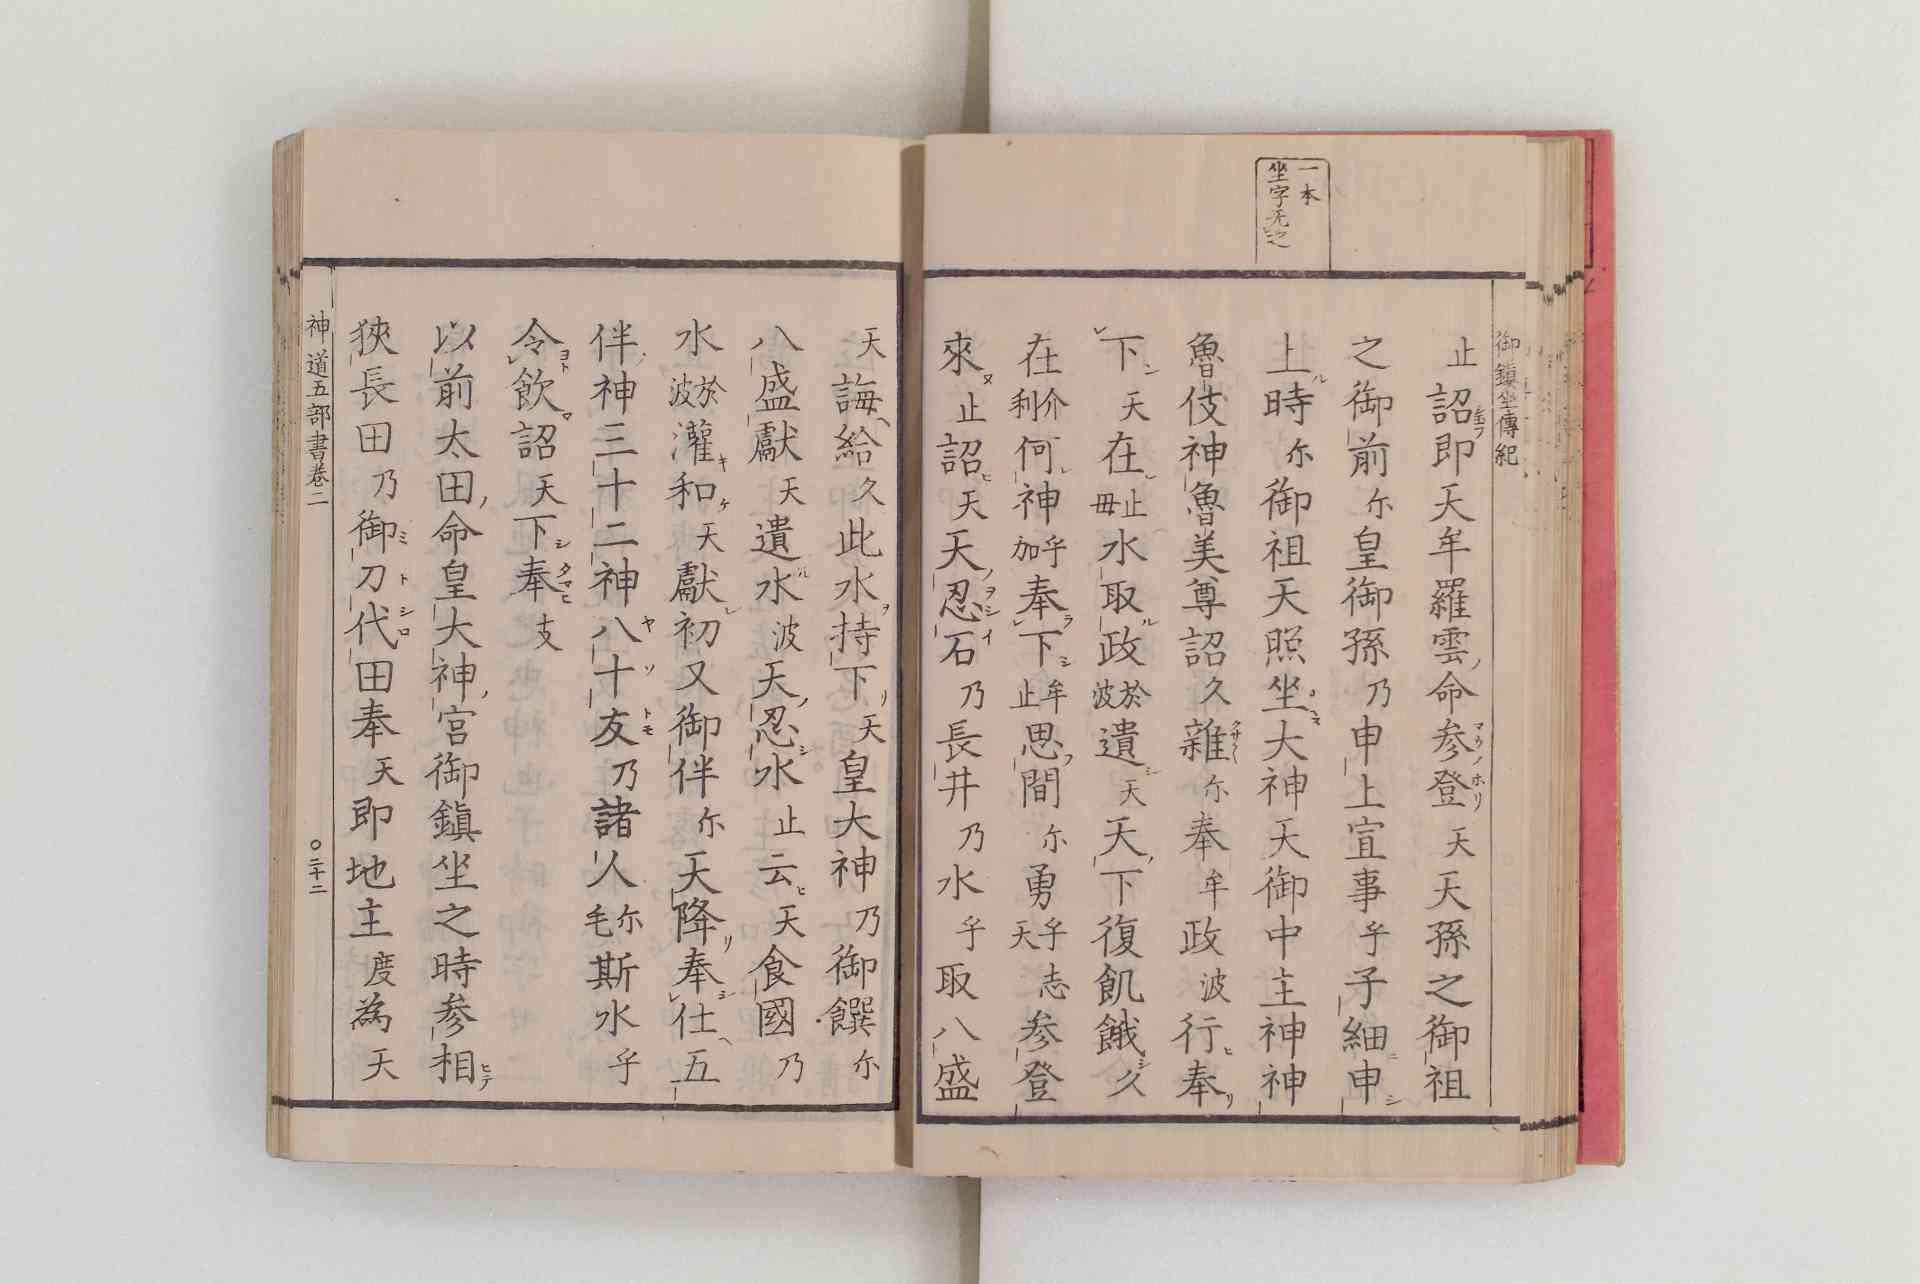 一本
坐字无之
御鎭坐傳紀
止詔即天牟羅雲命参登天天孫之御祖
之御前尓皇御孫乃申上宣事乎子細申
上時尓御祖天照坐大神天御中主神神
魯伎神魯美尊詔久雜尓奉牟政波行奉
下天在止毋水取政於波遺天天下復飢餓久
在介利何神乎加奉下牟止思間尓勇乎天志参登
來止詔天天忍石乃長井乃水乎取八盛
天誨給久此水持下天皇大神乃御饌尓
八盛獻天遺水波天忍水止云天食國乃
水於波灌和天獻初又御伴尓天降奉仕五
伴神三十二神八十友乃諸人尓毛斯水乎
令飲詔天下奉支
以前太田命皇大神宮御鎭坐之時参相
狹長田乃御刀代田奉天即地主度為天
神道五部書巻二
〇二十二